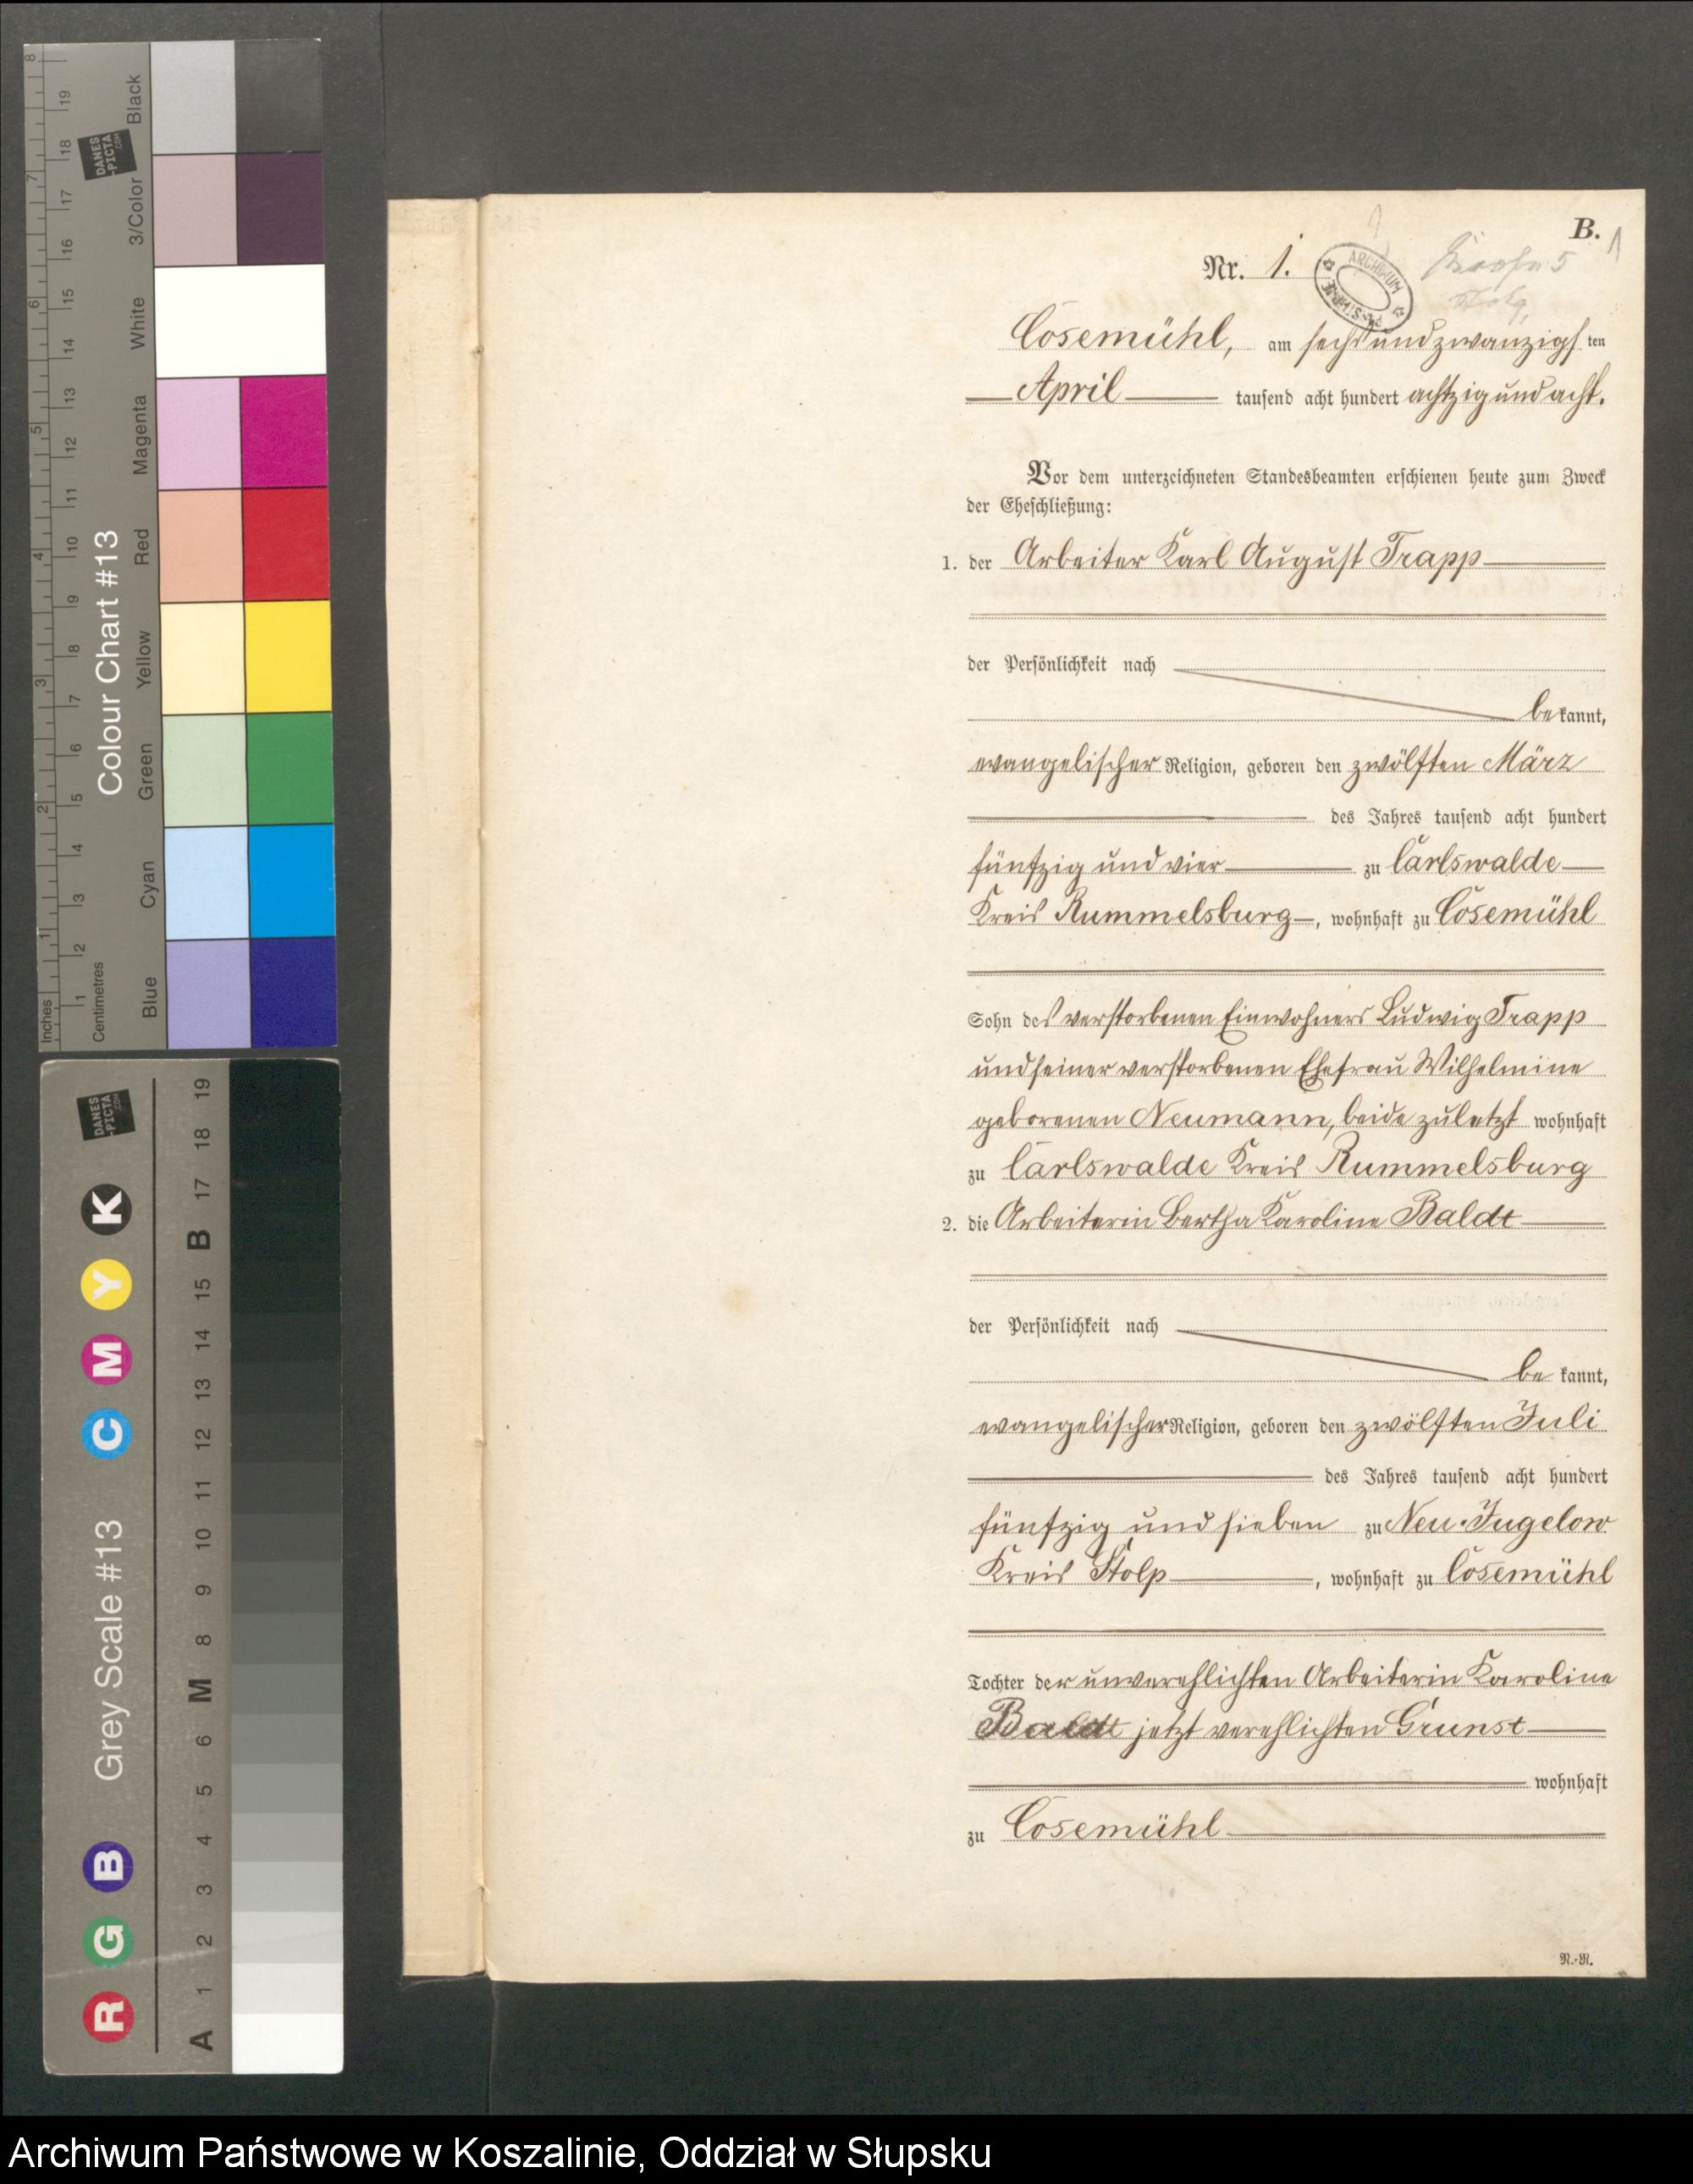 8
19
18
17
16
15
14
13
12
11
10
9
8
7
6
5
4
3
2
1
7
6
5
4
3
2
1
Inches
Centimetres
Colour Chart #13
DANES
-PICTA
.COM
Black
3/Color
White
Magenta
Red
Yellow
Green
Cyan
Blue
DANES
-PICTA
.COM
Grey Scale #13
R G B C M Y K
A 1 2 3 4 5 6 M 8 9 10 11 12 13 14 15 B 17 18 19
B.
1
Nr. 1.
ARCHIWUM
Cosemühl, am sechs und zwanzigsten
April tausend acht hundert achtzig und acht.
Vor dem unterzeichneten Standesbeamten erschienen heute zum Zweck
der Eheschließung:
1. der Arbeiter Karl August Trapp
der Persönlichkeit nach
bekannt,
evangelischer Religion, geboren den zwölften März
des Jahres tausend acht hundert
fünfzig und vier zu Carlswalde
Kreis Rummelsburg, wohnhaft zu Cosemühl
Sohn des verstorbenen Einwohners Ludwig Trapp
und seiner verstorbenen Ehefrau Wilhelmine
geborenen Neumann, beide zuletzt wohnhaft
zu Carlswalde Kreis Rummelsburg
2. die Arbeiterin Bertha Karoline Baldt
der Persönlichkeit nach
bekannt,
evangelischer Religion, geboren den zwölften Juli
des Jahres tausend acht hundert
fünfzig und sieben zu Neu-Jugelow
Kreis Stolp, wohnhaft zu Cosemühl
Tochter der unverehlichten Arbeiterin Karoline
Baldt jetzt verehlichten Grunst
wohnhaft
zu Cosemühl
N.-N.
Archiwum Państwowe w Koszalinie, Oddział w Słupsku